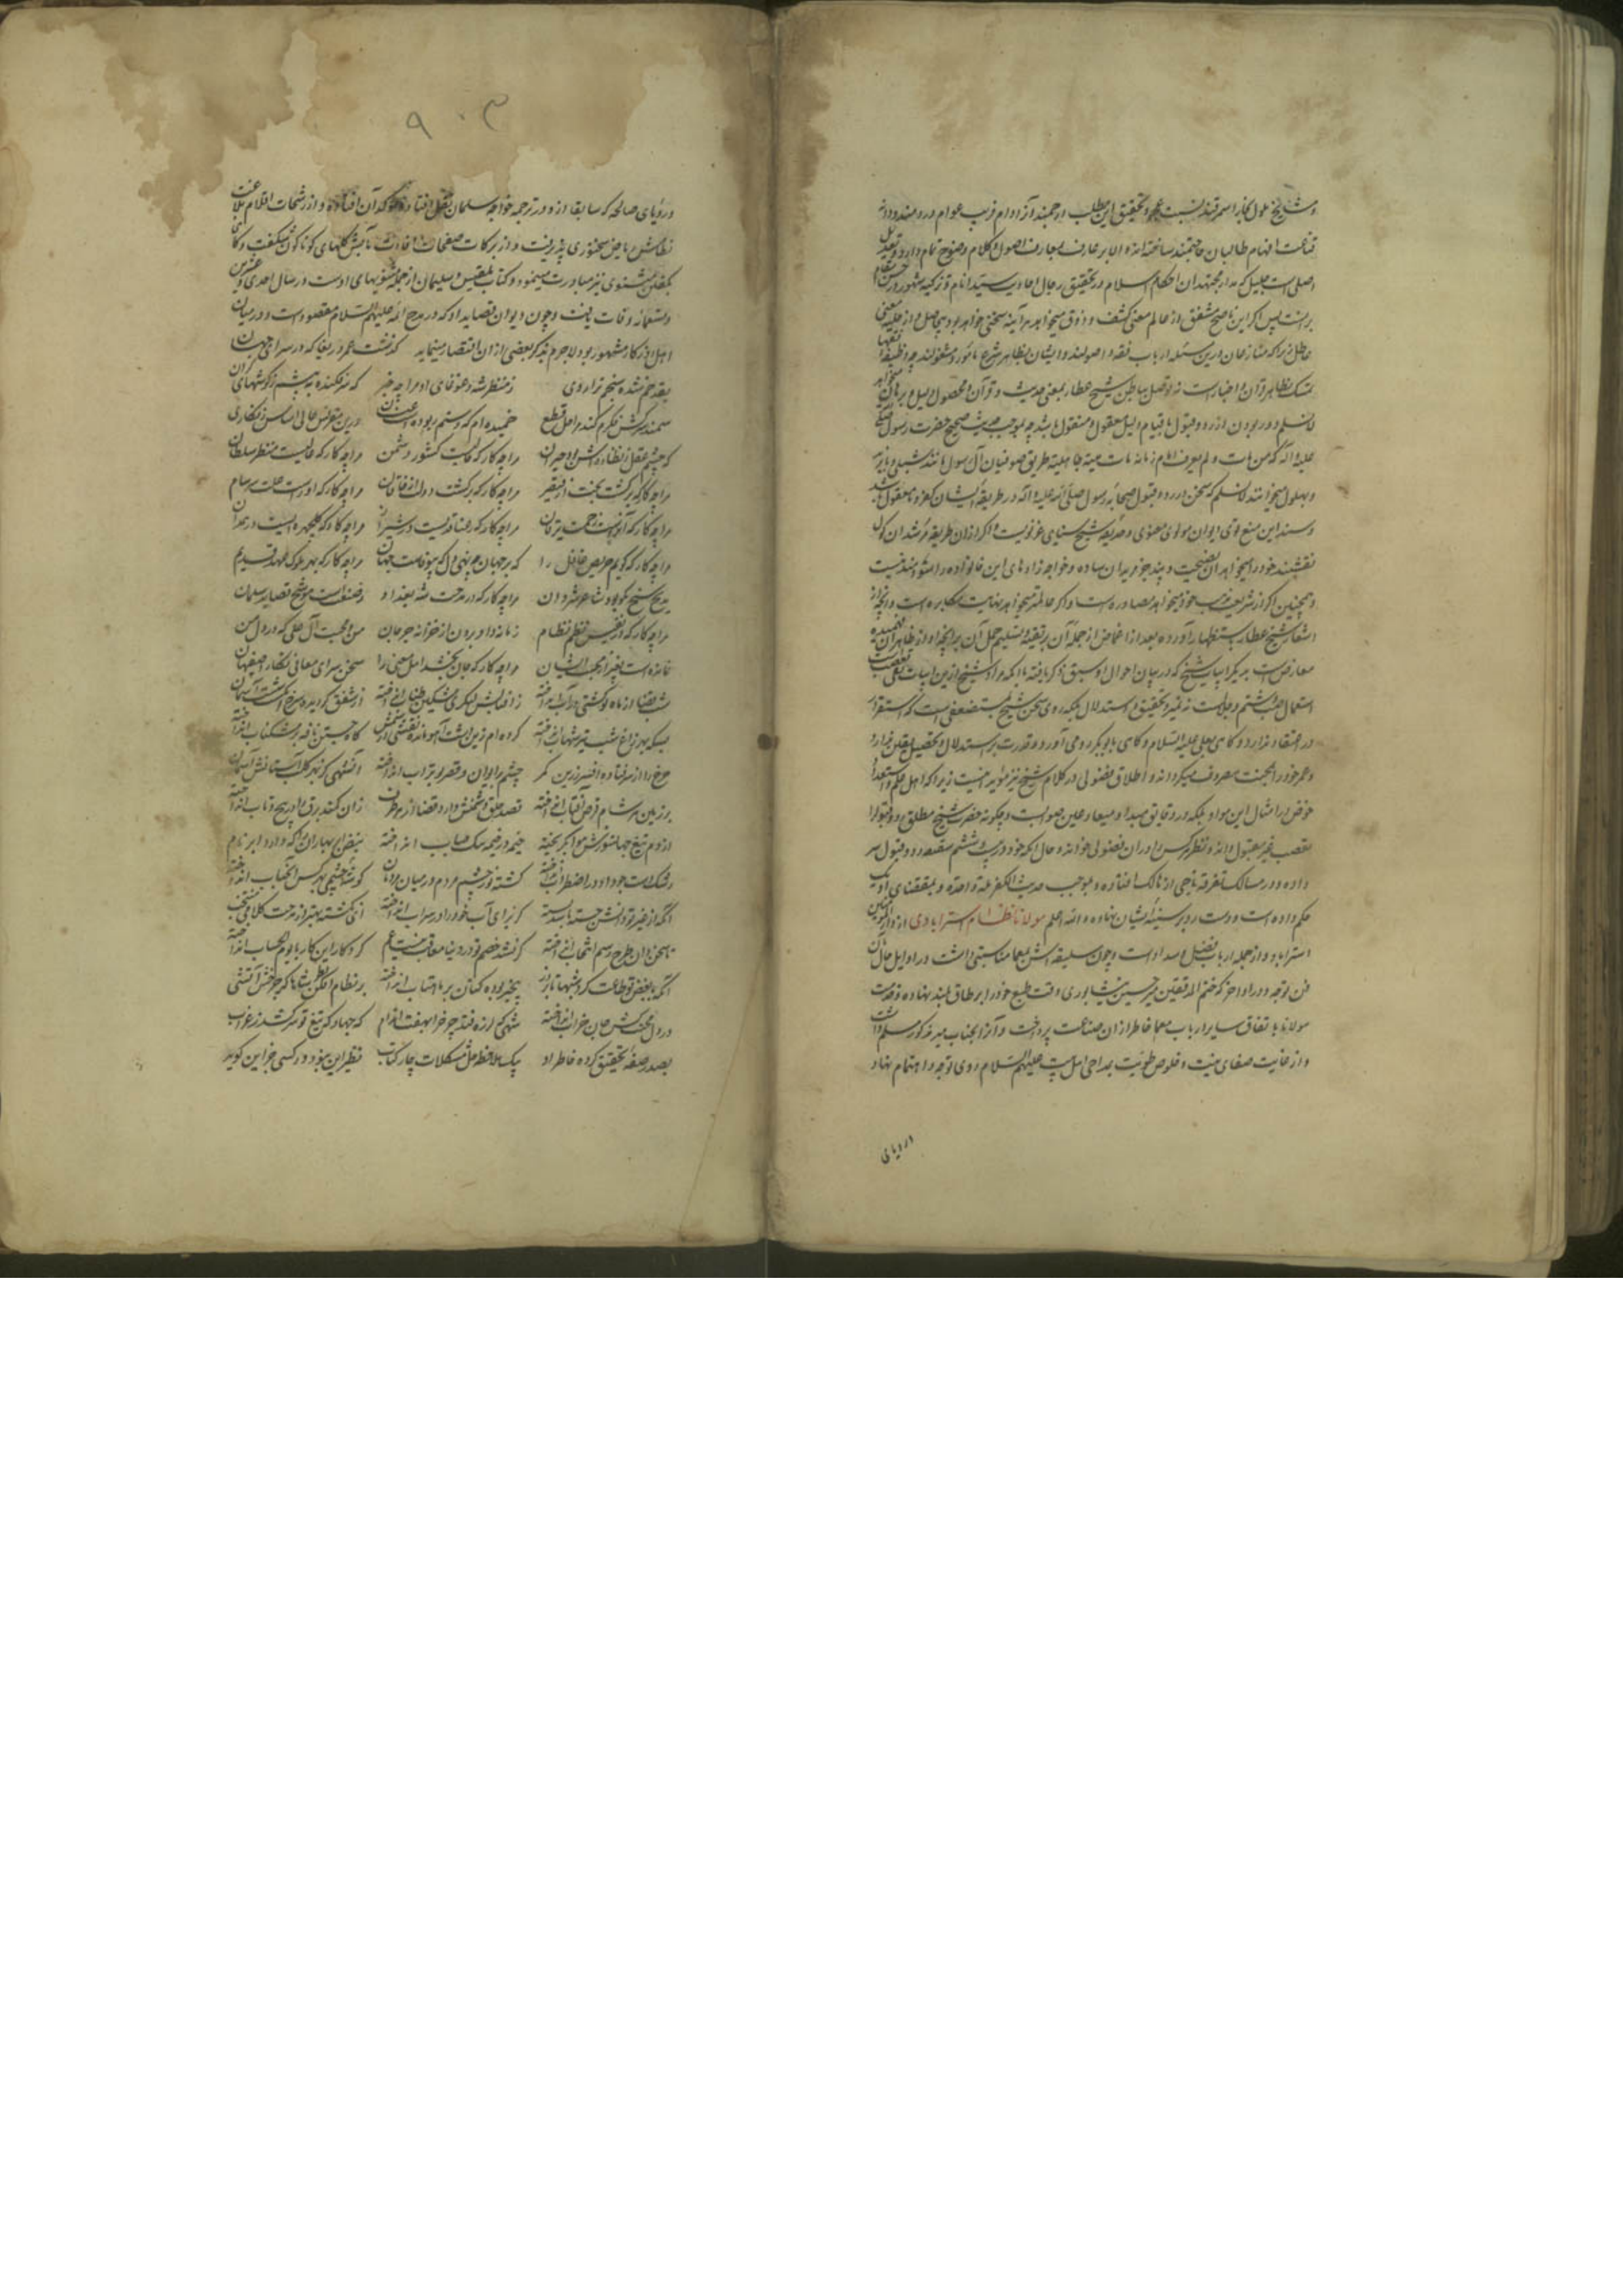 و مشایخ ملول بخارا سمرقند نسبت و تحقیق این مطلب ارجمند آزاد از دام فریب عوام درومند و درو
قناعت افهام طالبان حاجتمند ساخته اند و ان بر عارف معارف اصول و کلام وضوح تمام دارد و تعدیل
اصلی است جلیل که مدار مجتهدان احکام اسلام در تحقیق رجال احادیث سید انام و تزکیه مشهور در
پس اگر این ناصح مشفق از عالم معنی کشف و ذوق میخواهد هر آینه سخنی خواهد بود بیحاصل و از حلیه معنی
عاطل زیرا که منازعان درین مسئله ارباب فقه و اصولند و ایشان بظاهر شرع مامور و مشغولند چه وظیفه فقها
تمسک بظاهر قرآن و اخبار است نه توصل بباطن شیخ عطار بمعنی حدیث و قرآن و محصول دلیل و برهان میخواهد
لانسلم در بودن از رد و قبول با قیام دلیل معقول و منقول باشد چه بموجب حدیث صحیح حضرت رسول صلی
علیه و آله که من مات و لم یعرف امام زمانه مات میتة جاهلیة طریق صوفیان آل رسول مانند شبلی و بایزید
و بهلول میخوانند لانسلم که سخن در رد و قبول صحابه رسول صلی الله علیه و اله در طریقه ایشان کفر و نامعقول باشد
و سند این منع قوی دیوان مولوی معنوی و حدیقه شیخ سنایی غزنویست و اگر از ان طریقه مرشدان کول
نقشبند خود را میخواهد ان نصیحت و پند جز مریدان ساده و خواجه زاده های این خانواده را سودمند نیست
و همچنین اگر از شریعت مذهب خود میخواهد مصادره است و اگر حالتمند میخواهد نهایت مکابره است و آنچه از
اشعار شیخ عطار باستظهار آورده بعد از اغماض از حمله آن بر تقیه و تسلیم حمل آن بر آنچه او از ظاهر آن فهمیده
معارض است بدیگر ابیات شیخ که در بیان احوال او سبق ذکر یافته با آنکه مراد شیخ ازین ابیات نفی تعصب
استعمال شتم و ملامت نه نفی تحقیق و استدلال بلکه روی سخن شیخ بمستضعفی است که استقرار
در اعتقاد ندارد و گاهی بعلی علیه السلام و گاهی بابوبکر رو می آورد و قدرت بر استدلال و تحصیل یقین ندارد
و عمر خود را بحیث مصروف میگرداند و اطلاق فضولی در کلام شیخ نیز مؤید اینست زیرا که اهل علم و استعداد
خوض در امثال این مواد بلکه در دقایق مبدا و میعاد عین صوابست و چگونه حضرت شیخ مطلق رد و قبول را
بتعصب غیر مقبول داند و نظر کردن در ان فضولی خواند و حال آنکه خود در بیت ششم سفینه رد و قبول سر
داده و در مسالک تفرقه ناجی از هالک افتاده و بموجب حدیث الکفر ملة واحدة و بمقتضای
حکم داده است و دست رد بر سینه ایشان نهاده و الله اعلم مولانا نظام استرابادی از دار المؤمنین
استراباد و از جمله ارباب فضل و سداد است و چون سلیقه اش بمعما مناسبتی داشت در اوایل حال بآن
فن توجه و در اواخر که ختم المدققین میر حسین نیشابوری وقت طبع خود را بر طاق بلند نهاده و خدمت
مولانا با تفاق سایر ارباب معما خاطر از ان صناعت پرداخت و آنرا بجناب میر مذکور مسلم داشت
و از غایت صفای نیت و خلوص طویت بمداحی اهل بیت علیهم السلام روی توجه و اهتمام نهاد
از رویای
۹۰۳
و رؤیای صالحه که سابقا ازو در ترجمه خواجه سلمان نقل افتاده مؤکد آن افتاده و از رشحات اقلام بلاغت
نظامش ریاض سخنوری پذیرفت و از برکات صفحات افادت مآبش گلهای گوناگون شکفت و گاهی
بگفتن مثنوی نیز مبادرت مینمود و کتاب بلقیس و سلیمان از جمله مثنویهای اوست در سال احدی و عشرین
و تسعمائه وفات یافت و چون دیوان قصاید او که در مدح ائمه علیهم السلام مقصود است و در میان
اهل روزگار مشهور بود لاجرم بذکر بعضی از ان اقتصار مینماید گذشت عمر دریغا که در سرای جهان
بقد خم شده سنجم ترازوی ز منظر شه دعوفای او مرا چه خبر که نه فکنده به پیشم ز گوشهای گران
سمند سرکش فکرم کند مراحل قطع خمیده ام که و ستم ربوده است عنان درین مقرنس عالی اساس زنگاری
که چشم عقل ز نظاره اش بود حیران مرا چه کار که غالیست کشور دشمن مرا چه کار که عالیست منظر سلطان
مرا چه کار که برگشت بخت از قیصر مرا چه کار که برگشت دولت از خاقان مرا چه کار که او راست علت سرسام
مرا چه کار که او راست زحمت یرقان مرا چه کار که رعنا قدیست در شیراز مرا چه کار که گلچهره ایست در همدان
مرا چه کار که گویم حریص غافل را که بر جهان چه نهی دل که بیوفاست جهان مرا چه کار که بهر ملوک عهد قدیم
مدیح سنج که بود شاعر شروان مرا چه کار که در مدحت شه بغداد ز صنعت است موشح قصاید سلمان
مرا چه کار که در نفیس نظم نظام زمانه داد برون از خزانه جرجان من و محبت آل علی که در دل من
نمانده است بغیر از محبت ایشان مرا چه کار که جان بخشد اهل معنی را سخن سرای معانی نگار اصفهان
شب قضا از ماه نو کشتی در آب انداخته زلف لیلی لنگر مشکین طناب انداخته از شفق گردیده سرخ انگشت آسمان
بسکه بهر زاغ شب تیر شهاب انداخته کرده ام زین دشت آهو مانده نقش سمش گاه جستن نافه پر مشکناب انداخته
چرخ را از سر فتاده افسر زرین مگر چشم بر ایوان و قصر بوتراب انداخته آن شهی کز بهر کلب آستانش آسمان
بر زمین هر شام قرص آفتاب انداخته قصد خلق دشمنش دارد قضا از هر طرف زان کمند برق را در پیچ و تاب انداخته
از دم تیغ جهانسوزش هوا بگریخته خیمه در خیمه سگ حباب انداخته نیست این بهاران بلکه دارد ابر نام
رشک دست جود او در اضطراب انداخته گشته نور چشم مردم در میان مردمان گوشه چشمی بهر کس آنجناب انداخته
آنکه از غیر تو دانش جسته باشد تشنه کز برای آب خود را در سراب انداخته آنکه گشته بهتر از مدحت کلامی منتخب
تا سخن دان طرح رسم انتخاب انداخته گر نشد خصم تو در دنیا معاقب نیست غم کردگار این کار با یوم الحساب انداخته
آنکه با بغض تو طاعت کرد شبها تا بروز بیخبر بوده کتان بر ماهتاب انداخته بر نظام افکن نظر شاها که چرخش آتشی
در دل محنت کش جان خراب انداخته شهی که لرزه فتد چو خرامد بهفت اندام که جهاد که تیغ تو سر کشد ز غراب
بصدر صفه تحقیق کرده خاطر او بیک ملاحظه حل مشکلات چار کتاب نظیر این نبود ور کسی جز این گوید